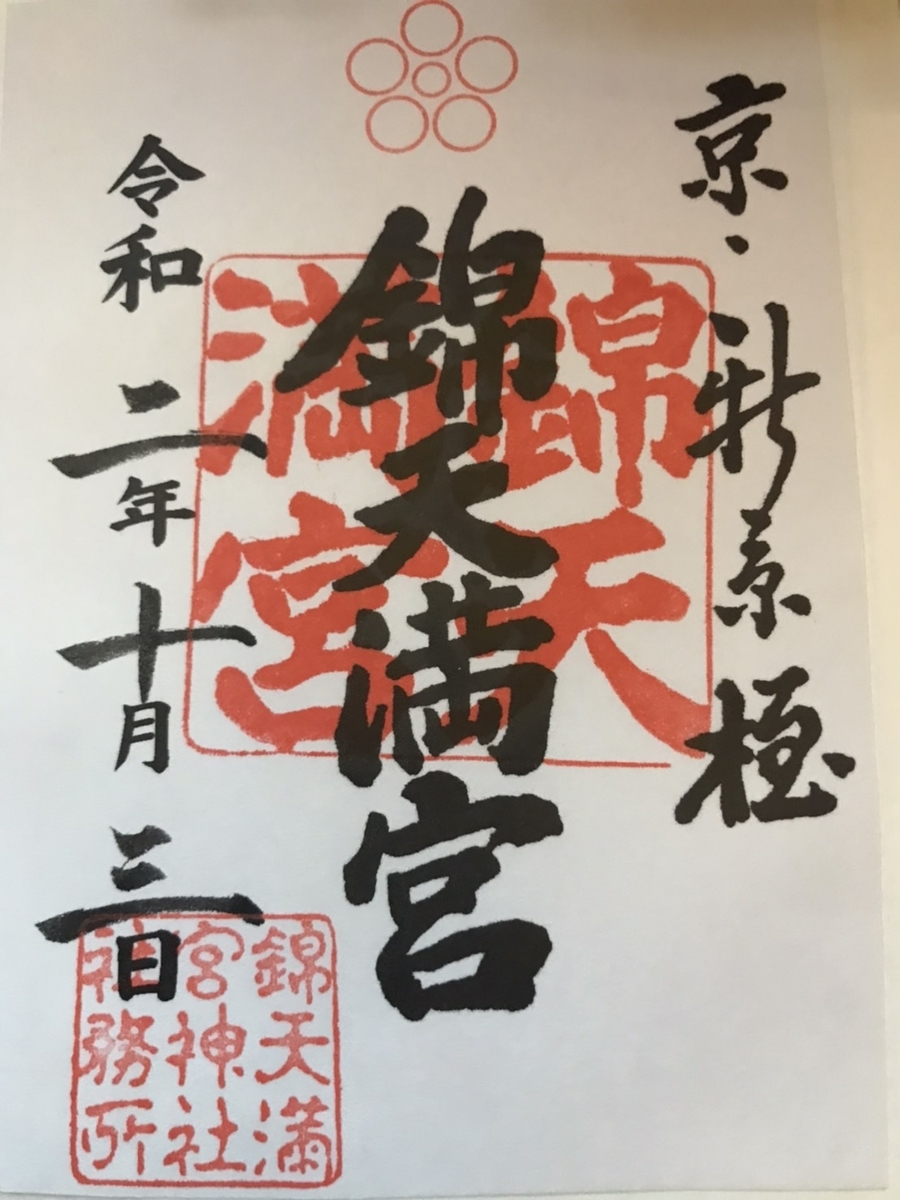 京・新京極
錦天満宮
錦天
満宮
令和二年十月三日
錦天満
宮神社
社務所